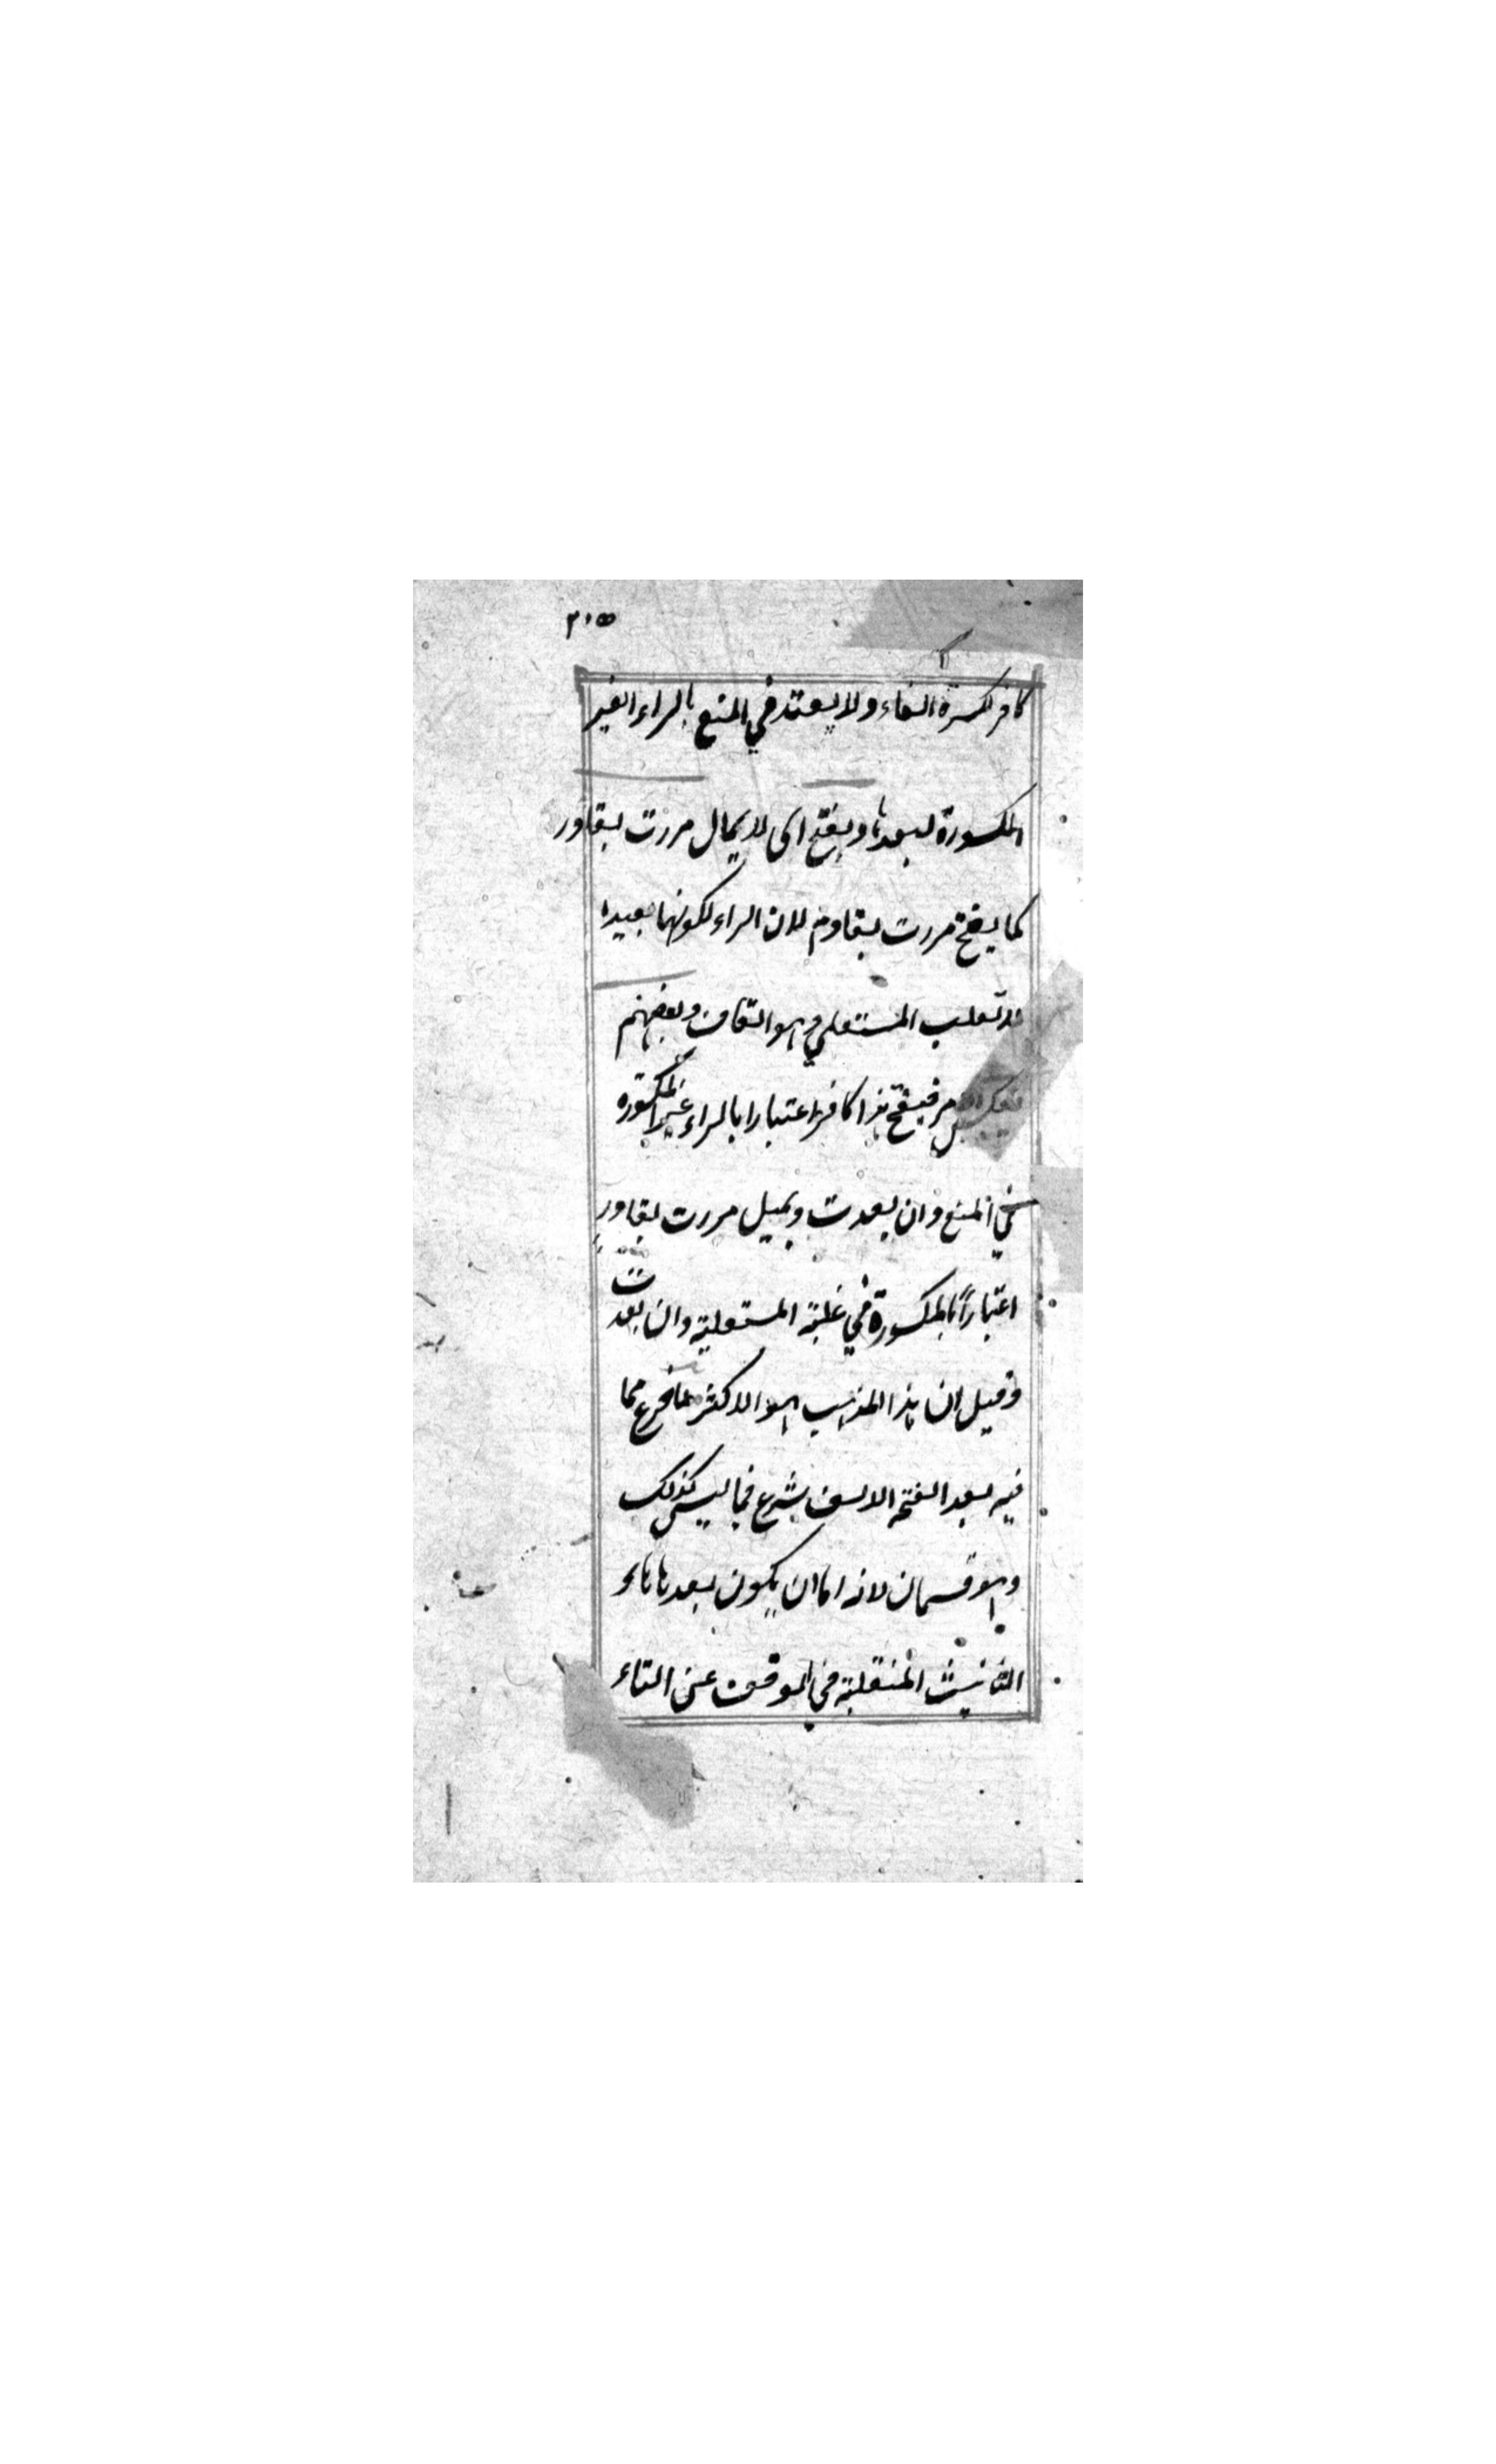 ٣١٥
كافر لكسرة الفاء ولا يعتد في المنع بالراء الغير
المكسورة لبعدها ويفتح اى لا يمال مررت بقادر
كما يفتح مررت بقادم لان الراء لكونها بعيدا
لا تغلب المستعلي وهو القاف وبعضهم
يعكس فيفتح هذا كافر اعتبارا بالراء غير المكسورة
في المنع وان بعدت ويميل مررت بقادرِ
اعتباراً بالمكسورة في غلبة المستعلية وان بعدت
وقيل ان هذا المذهب هو الاكثر فلما فرغ مما
فيه بعد الفتحة الالف شرع فيما ليس كذلك
وهو قسمان لانه اما ان يكون بعدها هاء
التانيث المنقلبة في الوقف عن التاء